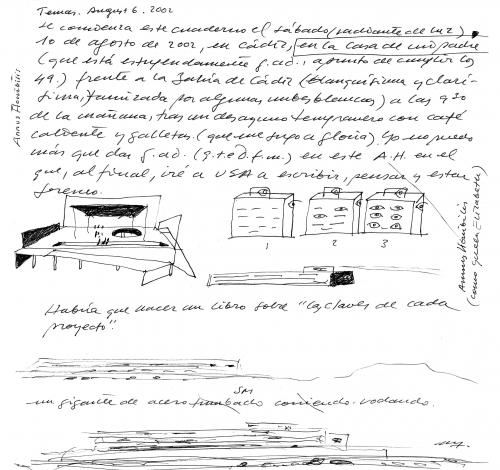 Temas. August 6. 2002
se comienza este cuaderno el sábado (radiante de luz)
10 de agosto de 2002, en Cádiz, en la casa de mi padre
(que está estupendamente g. a d., a punto de cumplir los
49.) frente a la Bahía de Cádiz (blanquísima y clarí-
sima, tamizada por algunas nubes blancas) a las 9 30
de la mañana, tras un desayuno tempranero con café
caliente y galletas. (que me supo a gloria). Yo no puedo
más que dar g. a d. (g. t e d f. m.) en este A.H. en el
que, al final, iré a USA a escribir, pensar y estar
sereno.
Annus Horribilis
Annus Horribilis
(como queen Elizabeth)
1 2 3
Habría que hacer un libro sobre "las claves de cada
proyecto".
SM
un gigante de acero tumbado comiendo. rodando.